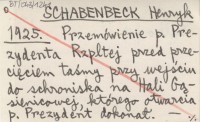 SCHABENBECK Henryk
1925. Przemówienie p. Pre-
zydenta Rzpltej przed prze-
cięciem taśmy przy wejściu
do schroniska na Hali Gą-
sienicowej, którego otwarcia
p. Prezydent dokonał. —